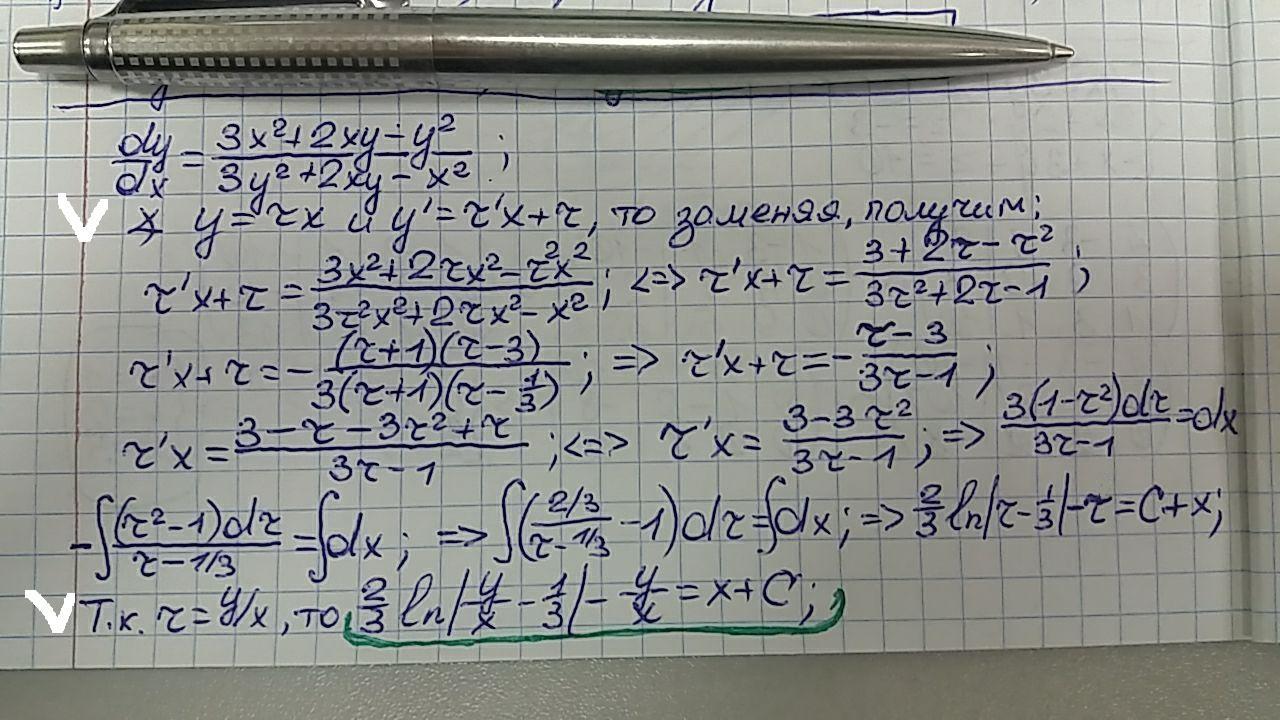 dy/dx = (3x²+2xy-y²)/(3y²+2xy-x²);
∢ y=τx и y'=τ'x+τ, то заменяя, получим:
τ'x+τ = (3x²+2τx²-τ²x²)/(3τ²x²+2τx²-x²); <=> τ'x+τ = (3+2τ-τ²)/(3τ²+2τ-1);
τ'x+τ = -(τ+1)(τ-3)/(3(τ+1)(τ-1/3)); => τ'x+τ = -(τ-3)/(3τ-1);
τ'x = (3-τ-3τ²+τ)/(3τ-1); <=> τ'x = (3-3τ²)/(3τ-1); => 3(1-τ²)dτ/(3τ-1) = dx
-∫(τ²-1)dτ/(τ-1/3) = ∫dx; => ∫((2/3)/(τ-1/3) - 1)dτ = ∫dx; => 2/3 ln|τ-1/3|-τ = C+x;
Т.к. τ=y/x, то 2/3 ln|y/x - 1/3| - y/x = x+C;